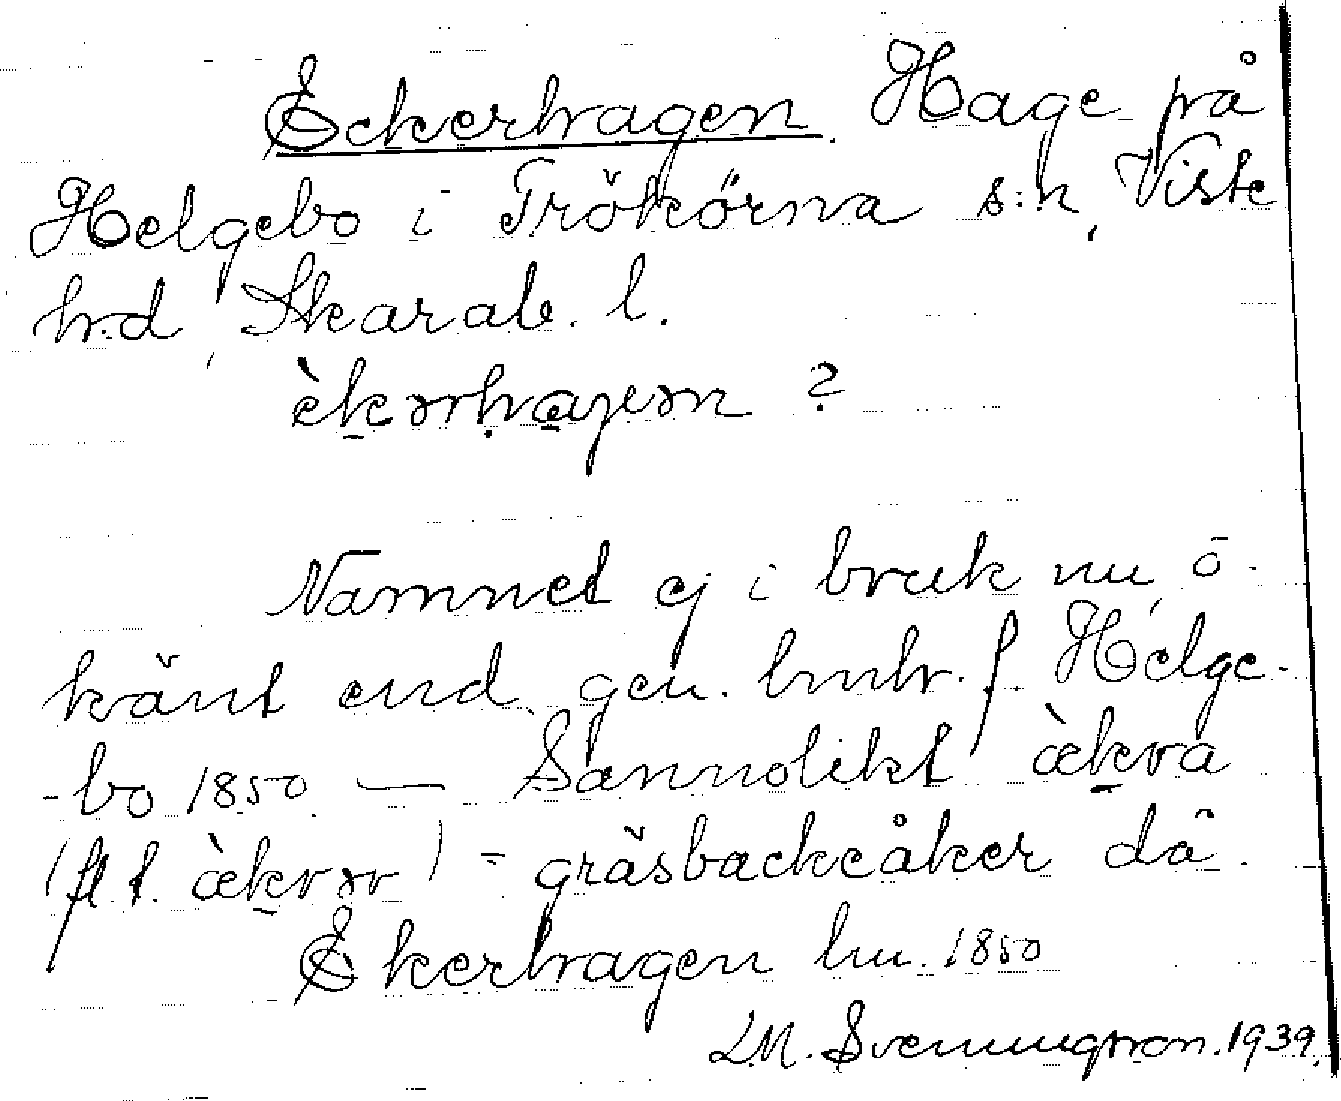 Eckerhagen. Hage på
Helgebo i Trökörna s:n, Viste
h:d, Skarab. l.
èkərhaɡən ?
Namnet ej i bruk nu, o-
känt end. gen. lmhr. f. Helge-
-bo 1850 — Sannolikt ækra
(fl f. ækrər) = gräsbackeåker då.
Ekerhagen lm. 1850
L.M. Svenungsson. 1939.